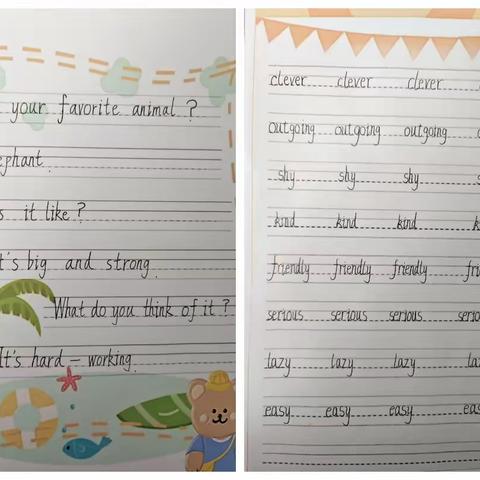 your favorite animal ?
ephant.
s it like ?
t's big and strong.
What do you think of it ?
It's hard - working.
clever clever clever
outgoing outgoing outgoing
shy shy shy
kind kind kind
friendly friendly friendly fri
serious serious serious serio
lazy lazy lazy la
easy easy easy eas